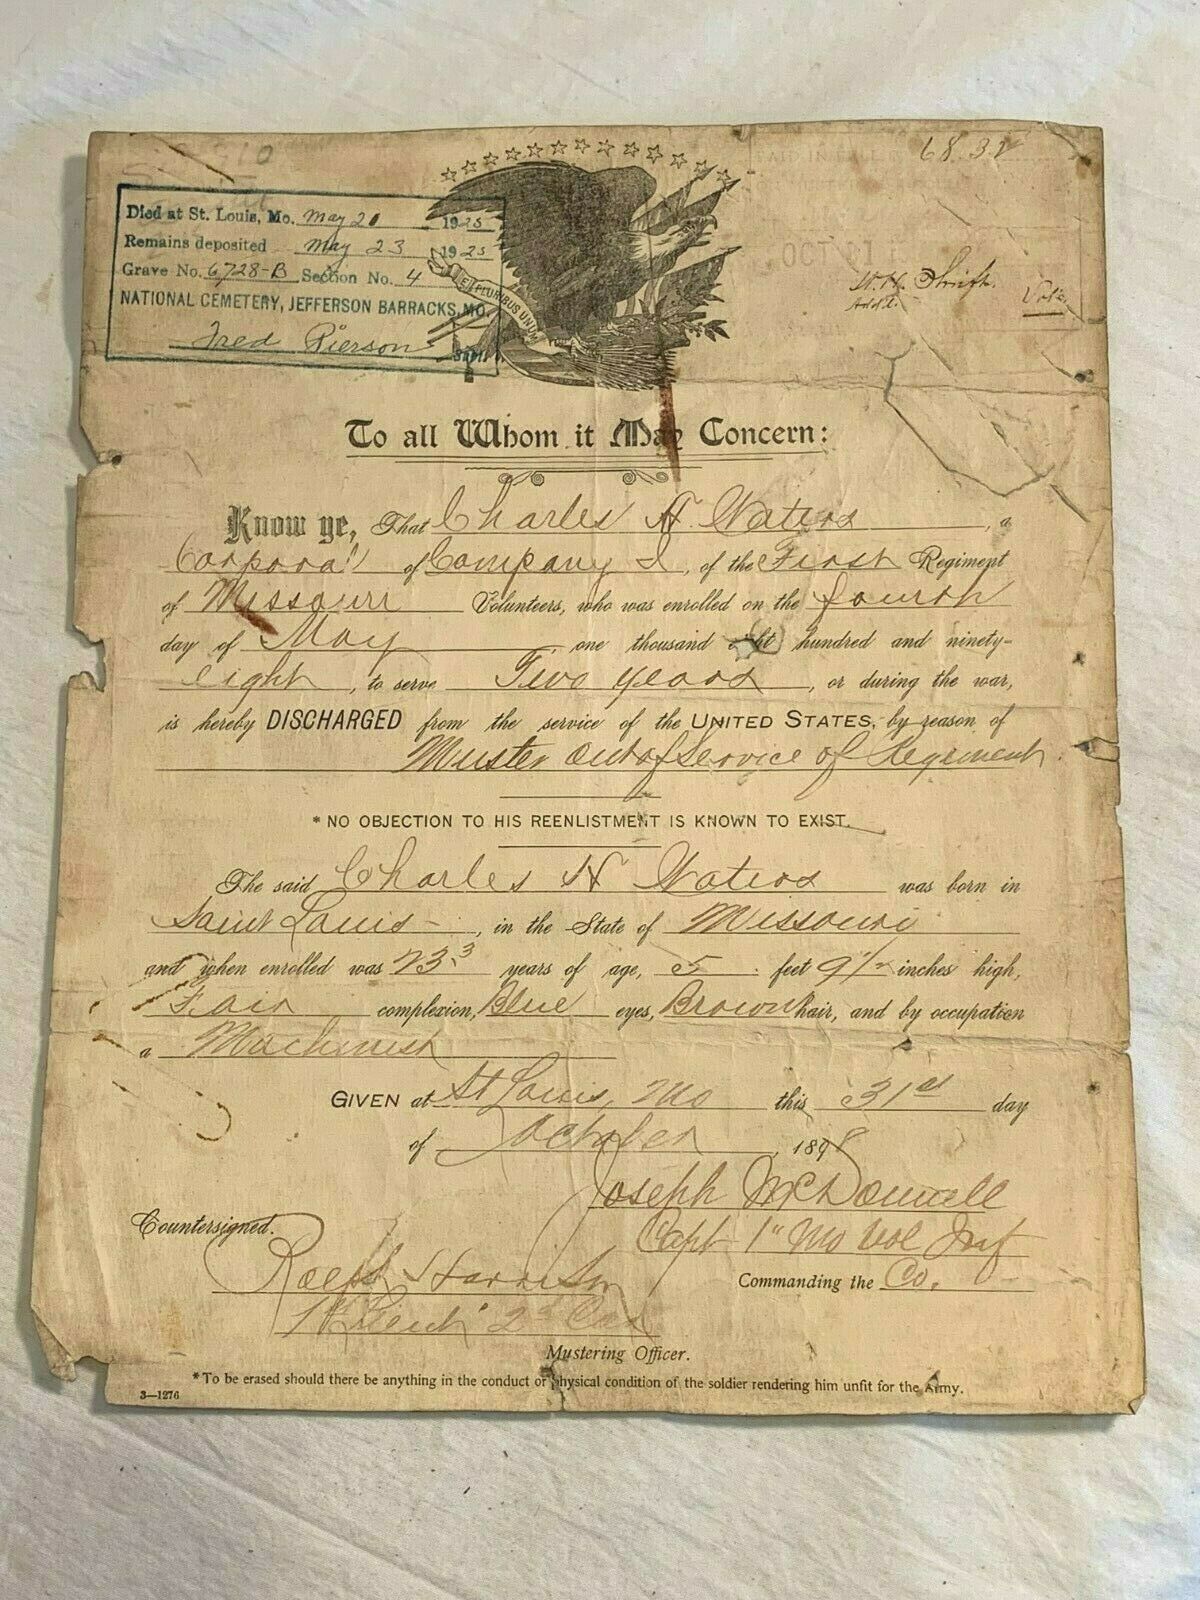 68.32
Died at St. Louis, Mo. May 20 1925
Remains deposited May 23 1925
Grave No. 6728-B Section No. 4
NATIONAL CEMETERY, JEFFERSON BARRACKS, MO.
Fred Pierson Supt.
E PLURIBUS UNUM
To all Whom it May Concern:
Know ye, That Charles H. Waters, a
Corporal of Company I, of the First Regiment
of Missouri Volunteers, who was enrolled on the fourth
day of May, one thousand eight hundred and ninety-
eight, to serve Two years, or during the war,
is hereby DISCHARGED from the service of the UNITED STATES, by reason of
Muster Out of Service of Regiment
* NO OBJECTION TO HIS REENLISTMENT IS KNOWN TO EXIST.
The said Charles H Waters was born in
Saint Louis, in the State of Missouri
and when enrolled was 23 years of age, 5 feet 9½ inches high,
Fair complexion, Blue eyes, Brown hair, and by occupation
a Machinist
GIVEN at St Louis, Mo this 31st day
of October, 1898
Joseph McDowell
Capt 1" Mo Vol Inf
Countersigned.
Commanding the Co.
Ralph Harrison
1st Lieut 2d Cav
Mustering Officer.
* To be erased should there be anything in the conduct or physical condition of the soldier rendering him unfit for the Army.
3—1276